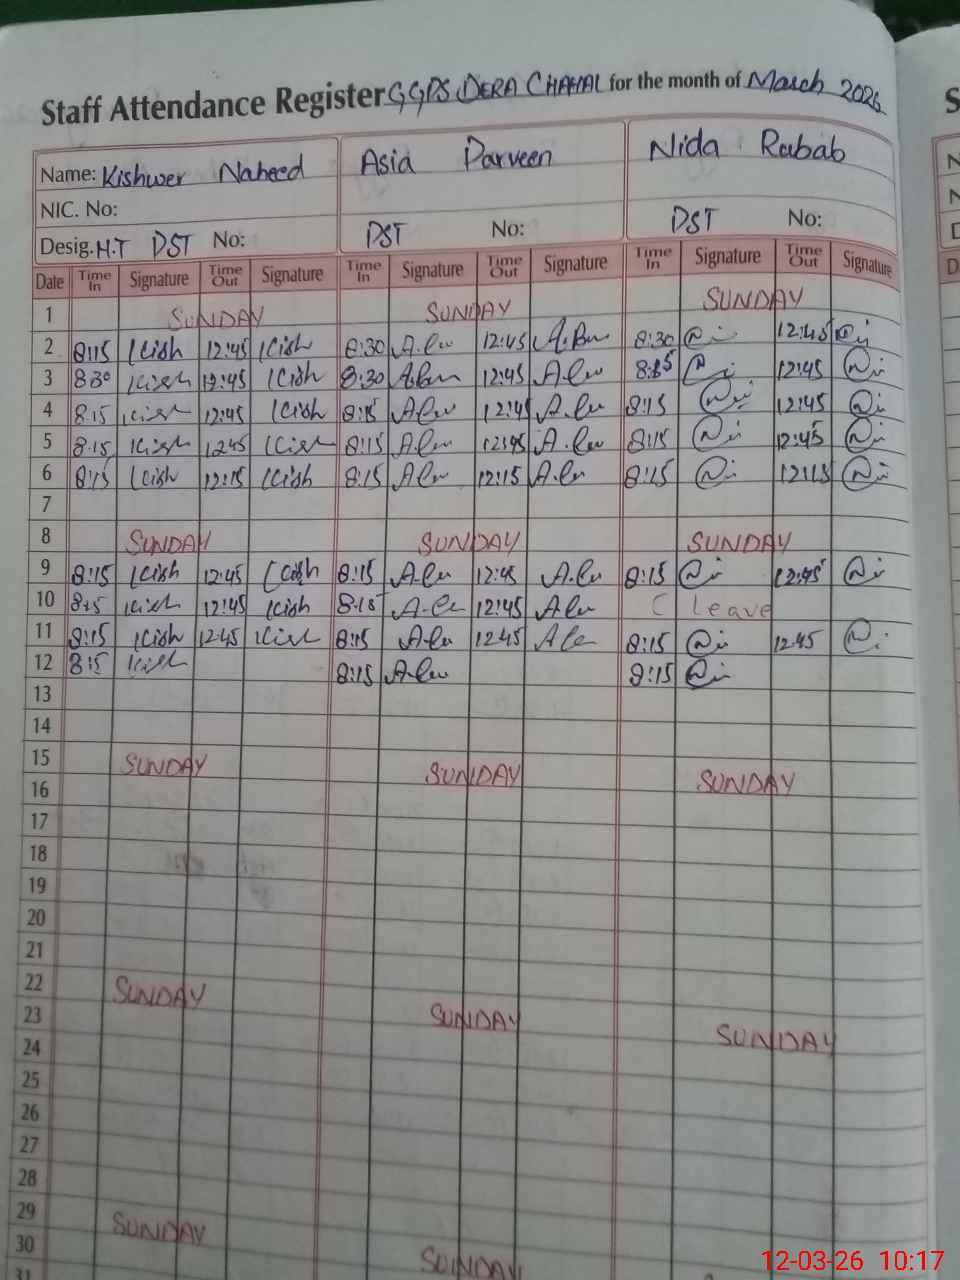 Staff Attendance Register GGPS DERA CHAHAL for the month of March 2026
Name: Kishwer Naheed Asia Parveen Nida Rabab
NIC. No:
Desig. H.T DST No: DST No: DST No:
Date Time In Signature Time Out Signature Time In Signature Time Out Signature Time In Signature Time Out Signature
1 SUNDAY SUNDAY SUNDAY
2 8:15 Kish 12:45 Kish 8:30 12:45 8:30 12:45
3 8:30 Kish 12:45 Kish 8:30 12:45 12:45
4 8:15 Kish 12:45 Kish 8:15 12:45 8:15 12:45
5 8:15 Kish 12:45 Kish 8:15 12:45 8:15 12:45
6 8:15 Kish 12:15 Kish 8:15 12:15 8:15 12:15
7
8 SUNDAY SUNDAY SUNDAY
9 8:15 Kish 12:45 Kish 8:15 12:45 8:15 12:45
10 8:15 Kish 12:45 Kish 8:15 12:45 Leave
11 8:15 Kish 12:45 Kish 8:15 12:45 8:15 12:45
12 8:15 Kish 8:15 8:15
13
14
15 SUNDAY SUNDAY SUNDAY
16
17
18
19
20
21
22 SUNDAY
23 SUNDAY SUNDAY
24
25
26
27
28
29 SUNDAY
30 SUNDAY
31
12-03-26 10:17